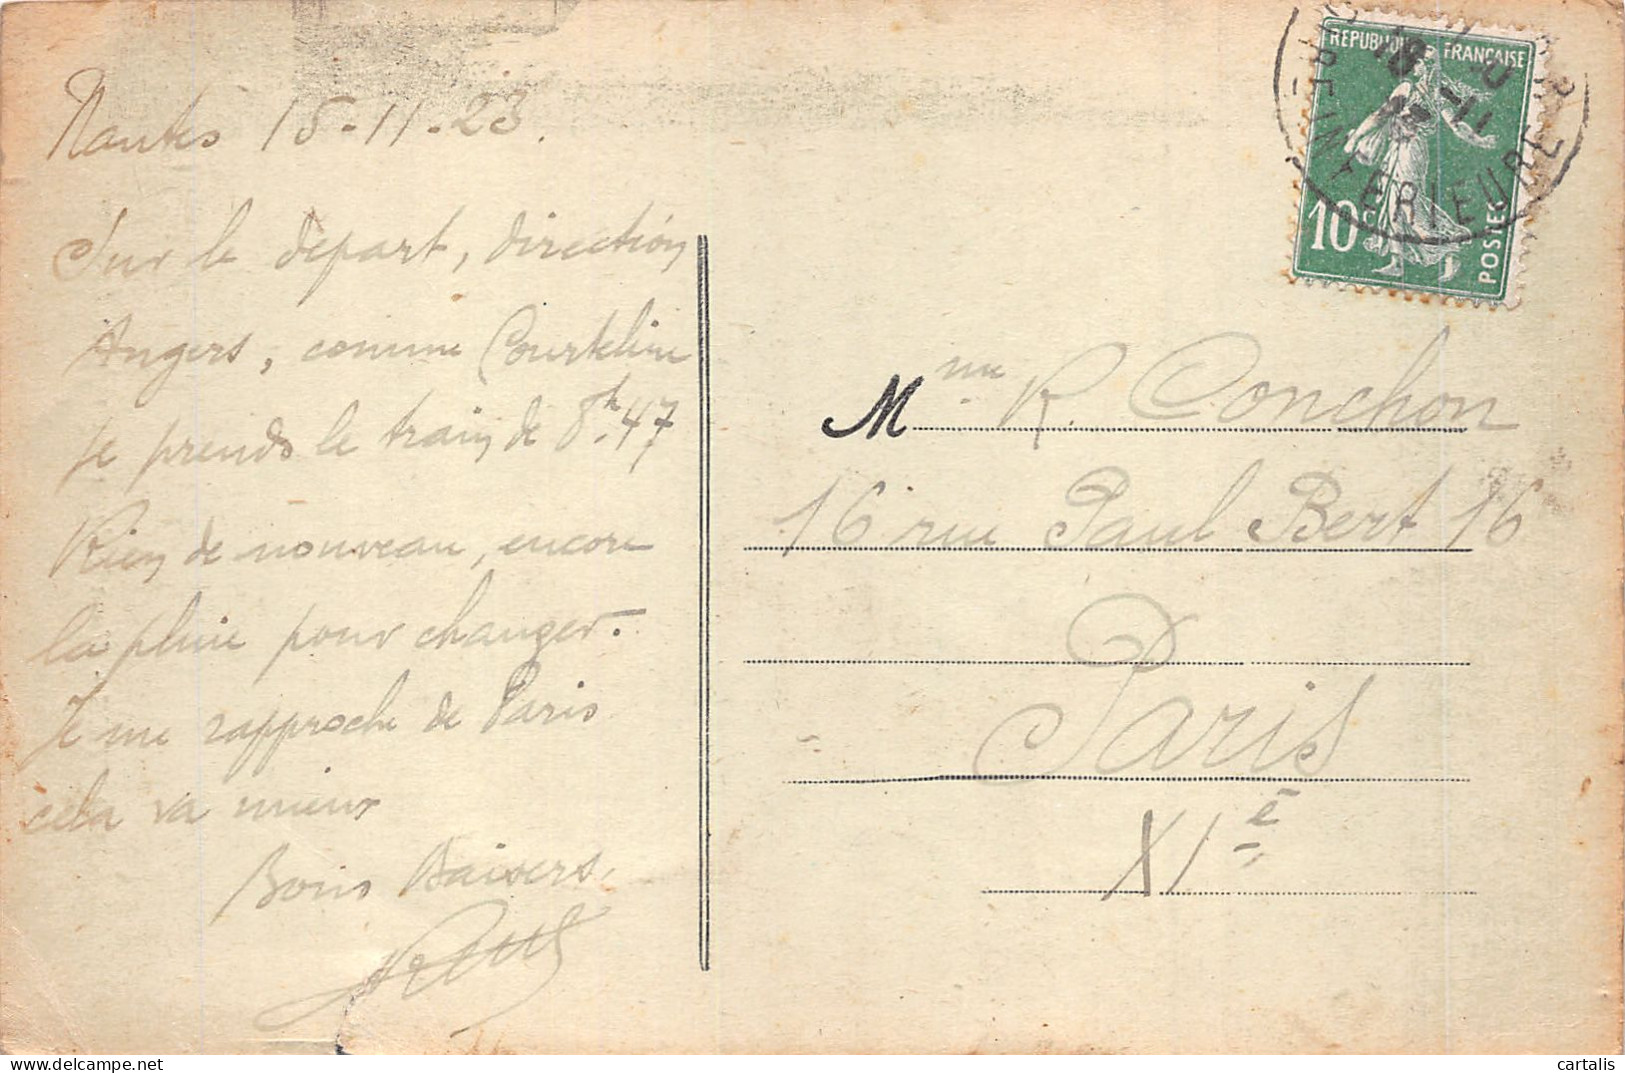 Nantes 15-11-23.
Sur le départ, direction
Angers, comme Courteline
je prends le train de 8h.47
Rien de nouveau, encore
la pluie pour changer.
Je me rapproche de Paris
cela va mieux
Bons Baisers.
REPUBLIQUE FRANÇAISE
10c
POSTES
Mme R. Conchon
16 rue Paul Bert 16
Paris
XIe
cartalis